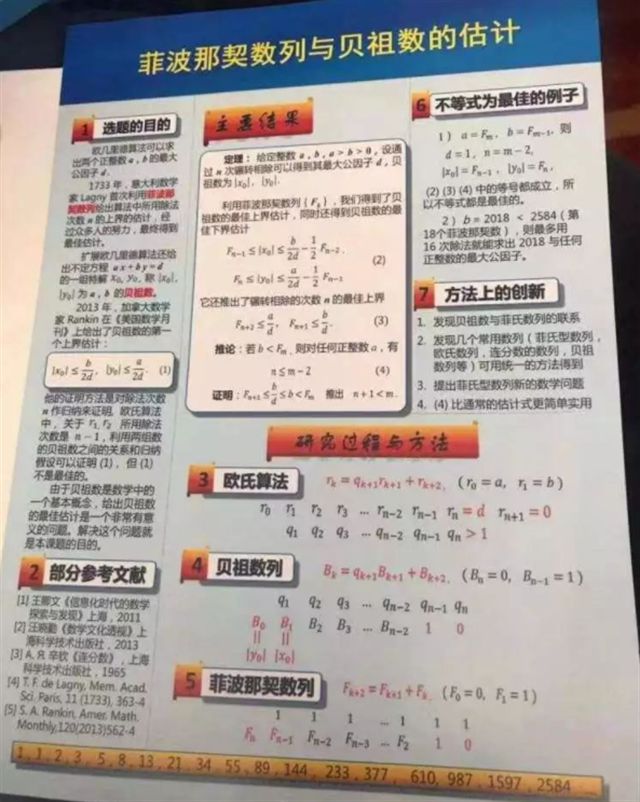 菲波那契数列与贝祖数的估计
1 选题的目的
欧几里德算法可以求
出两个正整数 a , b 的最大
公因子 d .
1733 年，意大利数学
家 Lagny 首次利用菲波那
契数列给出算法中所用除法
次数 n 的上界的估计，经
过众多人的努力，最终得到
最佳估计。
扩展欧几里德算法还给
出不定方程 ax+by=d
的一组特解 x₀, y₀, 称 |x₀|,
|y₀| 为 a , b 的贝祖数。
2013 年，加拿大数学
家 Rankin 在《美国数学月
刊》上给出了贝祖数的第一
个上界估计：
|x₀| ≤ b/2d, |y₀| ≤ a/2d. (1)
他的证明方法是对除法次数
n 作归纳来证明. 欧氏算法
中，关于 r₁, r₂ 所用除法
次数是 n − 1，利用两组数
的贝祖数之间的关系和归纳
假设可以证明 (1)，但 (1)
不是最佳的。
由于贝祖数是数学中的
一个基本概念，给出贝祖数
的最佳估计是一个非常有意
义的问题。解决这个问题就
是本课题的目的。
2 部分参考文献
[1] 王 文《信息化时代的数学
探索与发现》上海，2011
[2] 汪晓勤《数学文化透视》上
海科学技术出版社，2013
[3] A. Я. 辛钦《连分数》，上海
科学技术出版社，1965
[4] T. F. de Lagny, Mem. Acad.
Sci. Paris, 11 (1733), 363-4
[5] S. A. Rankin, Amer. Math.
Monthly,120(2013)562-4
主要结果
定理：给定整数 a , b , a > b > 0 , 设通
过 n 次辗转相除可以得到其最大公因子 d , 贝
祖数为 |x₀|, |y₀|.
利用菲波那契数列 { Fₖ } , 我们得到了贝
祖数的最佳上界估计，同时还得到贝祖数的最
佳下界估计
Fₙ₋₁ ≤ |x₀| ≤ b/2d − 1/2 Fₙ₋₂ ,
(2)
Fₙ ≤ |y₀| ≤ a/2d − 1/2 Fₙ₋₁
它还推出了辗转相除的次数 n 的最佳上界
Fₙ₊₂ ≤ a/d, Fₙ₊₁ ≤ b/d. (3)
推论：若 b < Fₘ , 则对任何正整数 a , 有
n ≤ m − 2 (4)
证明：Fₙ₊₁ ≤ b/d ≤ b < Fₘ 推出 n + 1 < m .
6 不等式为最佳的例子
1 ) a = Fₘ , b = Fₘ₋₁ , 则
d = 1 , n = m − 2,
|x₀| = Fₙ₋₁ , |y₀| = Fₙ ,
(2) (3) (4) 中的等号都成立，所
以不等式都是最佳的。
2 ) b = 2018 < 2584 ( 第
18个菲波那契数 ) , 则最多用
16 次除法就能求出 2018 与任何
正整数的最大公因子。
7 方法上的创新
1. 发现贝祖数与菲氏数列的联系
2. 发现几个常用数列 ( 菲氏型数列 ,
欧氏数列，连分数的数列，贝祖
数列等 ) 可用统一的方法得到
3. 提出菲氏型数列新的数学问题
4. (4) 比通常的估计式更简单实用
研究过程与方法
3 欧氏算法 rₖ = qₖ₊₁rₖ₊₁ + rₖ₊₂ , ( r₀ = a, r₁ = b )
r₀ r₁ r₂ r₃ … rₙ₋₂ rₙ₋₁ rₙ = d rₙ₊₁ = 0
q₁ q₂ q₃ … qₙ₋₂ qₙ₋₁ qₙ > 1
4 贝祖数列 Bₖ = qₖ₊₁Bₖ₊₁ + Bₖ₊₂ , ( Bₙ = 0, Bₙ₋₁ = 1 )
q₁ q₂ q₃ … qₙ₋₂ qₙ₋₁ qₙ
B₀ B₁ B₂ B₃ … Bₙ₋₂ 1 0
|| ||
|y₀| |x₀|
5 菲波那契数列 Fₖ₊₂ = Fₖ₊₁ + Fₖ , ( F₀ = 0, F₁ = 1 )
1 1 1 … 1 1 1
Fₙ Fₙ₋₁ Fₙ₋₂ Fₙ₋₃ … F₂ 1 0
1 , 1 , 2 , 3 , 5 , 8 , 13 , 21 , 34 , 55 , 89 , 144 , 233 , 377 , 610, 987 , 1597 , 2584 ……